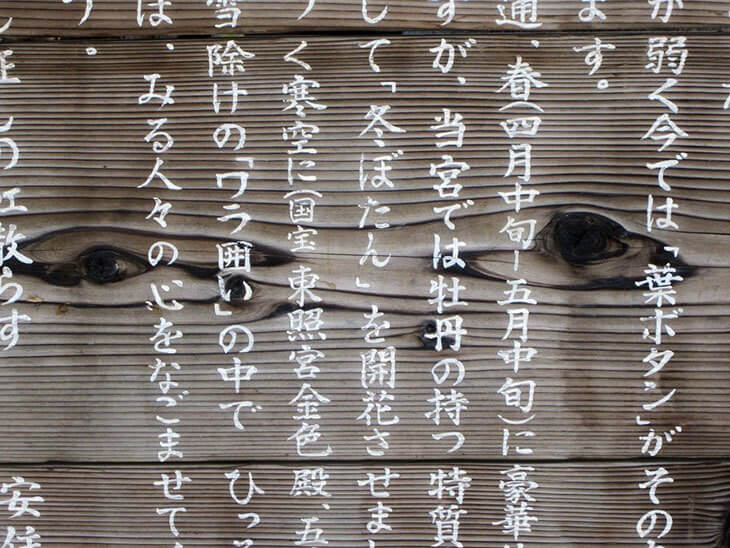 が弱く今では「葉ボタン」がその
ます。
通、春(四月中旬ー五月中旬)に豪華
すが、当宮では牡丹の持つ特質
して「冬ぼたん」を開花させまし
く寒空に(国宝東照宮金色殿、五
雪除けの「ワラ囲い」の中でひっ
は、みる人々の心をなごませてく
す。
の正散らす
安住